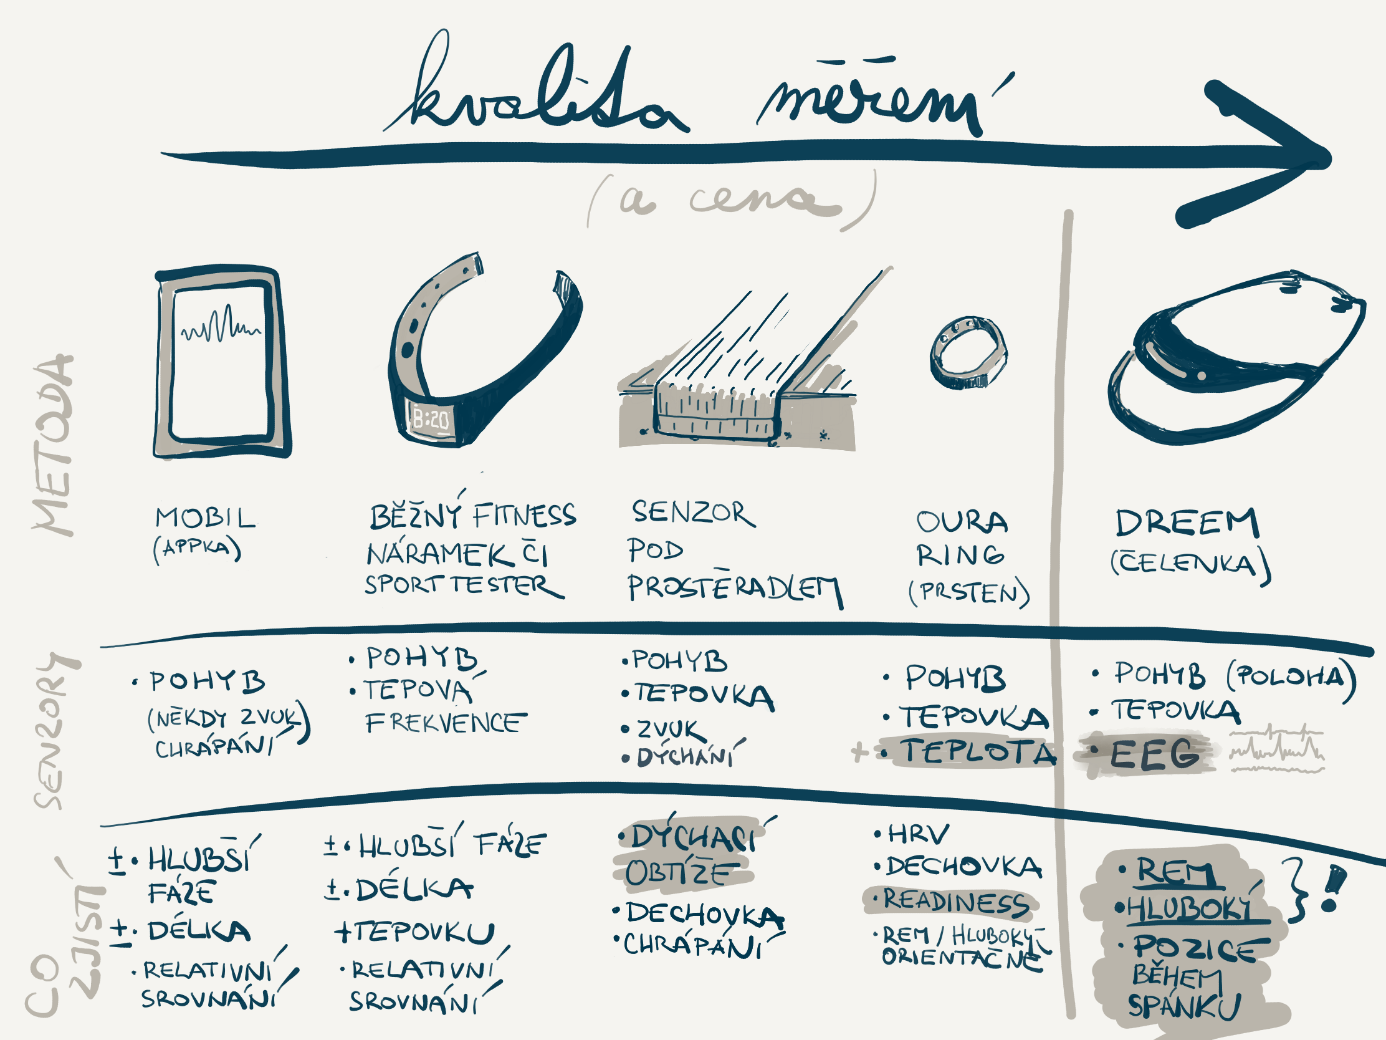 kvalita měření
(a cena)
METODA
8:20
MOBIL
(APPKA)
BĚŽNÝ FITNESS
NÁRAMEK ČI
SPORTTESTER
SENZOR
POD
PROSTĚRADLEM
OURA
RING
(PRSTEN)
DREEM
(ČELENKA)
SENZORY
• POHYB
(NĚKDY ZVUK)
CHRÁPÁNÍ
• POHYB
• TEPOVÁ
FREKVENCE
• POHYB
• TEPOVKA
• ZVUK
• DÝCHÁNÍ
• POHYB
• TEPOVKA
+ • TEPLOTA
• POHYB (POLOHA)
• TEPOVKA
• EEG
CO
ZJISTÍ
± • HLUBŠÍ
FÁZE
± • DÉLKA
• RELATIVNÍ
SROVNÁNÍ
± • HLUBŠÍ FÁZE
± • DÉLKA
+ TEPOVKU
• RELATIVNÍ
SROVNÁNÍ
• DÝCHACÍ
OBTÍŽE
• DECHOVKA
• CHRÁPÁNÍ
• HRV
• DECHOVKA
• READINESS
• REM / HLUBOKÝ
ORIENTAČNĚ
• REM
• HLUBOKÝ
} !
• POZICE
BĚHEM
SPÁNKU